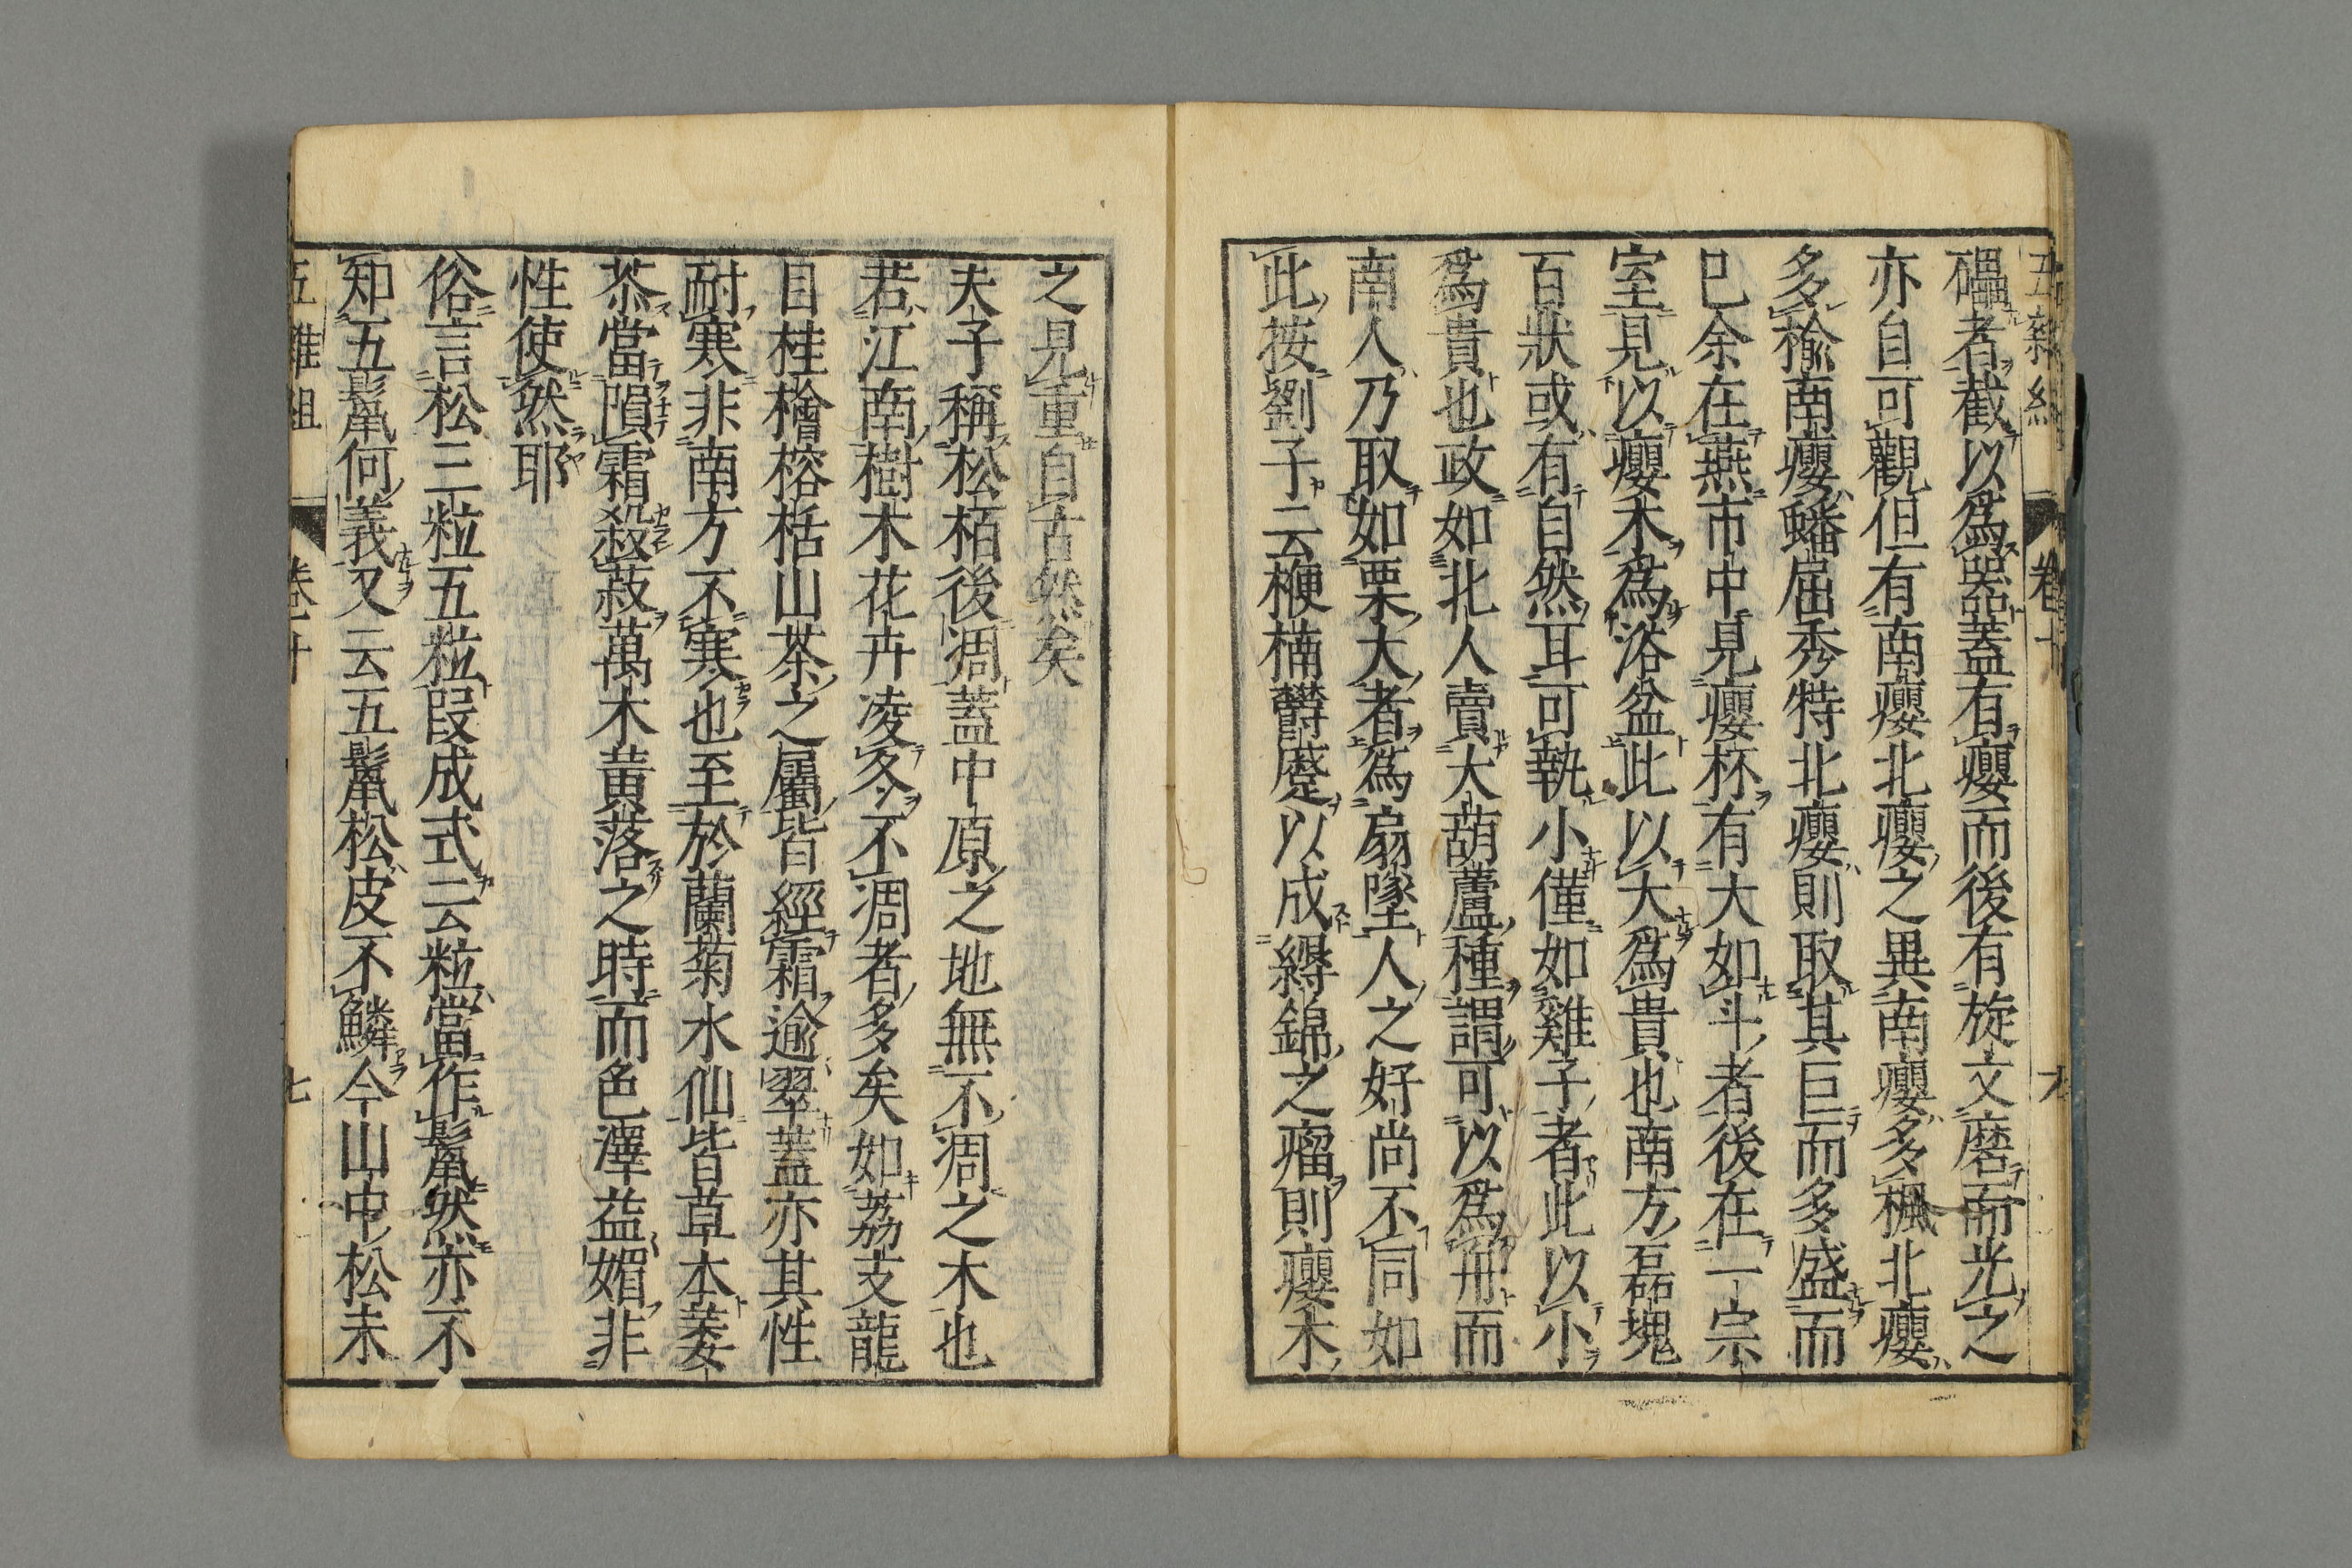 五雜組 卷十 六
礧者截以爲器蓋有癭而後有旋文磨而光之
亦自可觀但有南癭北癭之異南癭多楓北癭
多榆南癭蟠屈秀特北癭則取其巨而多盛而
已余在燕市中見癭杯有大如斗者後在一宗
室見以癭木爲浴盆此以大爲貴也南方磊塊
百狀或有自然耳可執小僅如雞子者此以小
爲貴也政如北人賣大葫蘆種謂可以爲冊而
南人乃取如栗大者爲扇墜人之好尚不同如
此按劉子云楩楠鬱蹙以成縟錦之瘤則癭木
之見重自古然矣
夫子稱松栢後凋蓋中原之地無不凋之木也
若江南樹木花卉凌冬不凋者多矣如荔支龍
目桂檜榕栝山茶之屬皆經霜逾翠蓋亦其性
耐寒非南方不寒也至於蘭菊水仙皆草本萎
苶當隕霜殺菽萬木黃落之時而色澤益媚非
性使然耶
俗言松三粒五粒段成式云粒當作鬣然亦不
知五鬣何義又云五鬣松皮不鱗今山中松未
五雜組 卷十 七